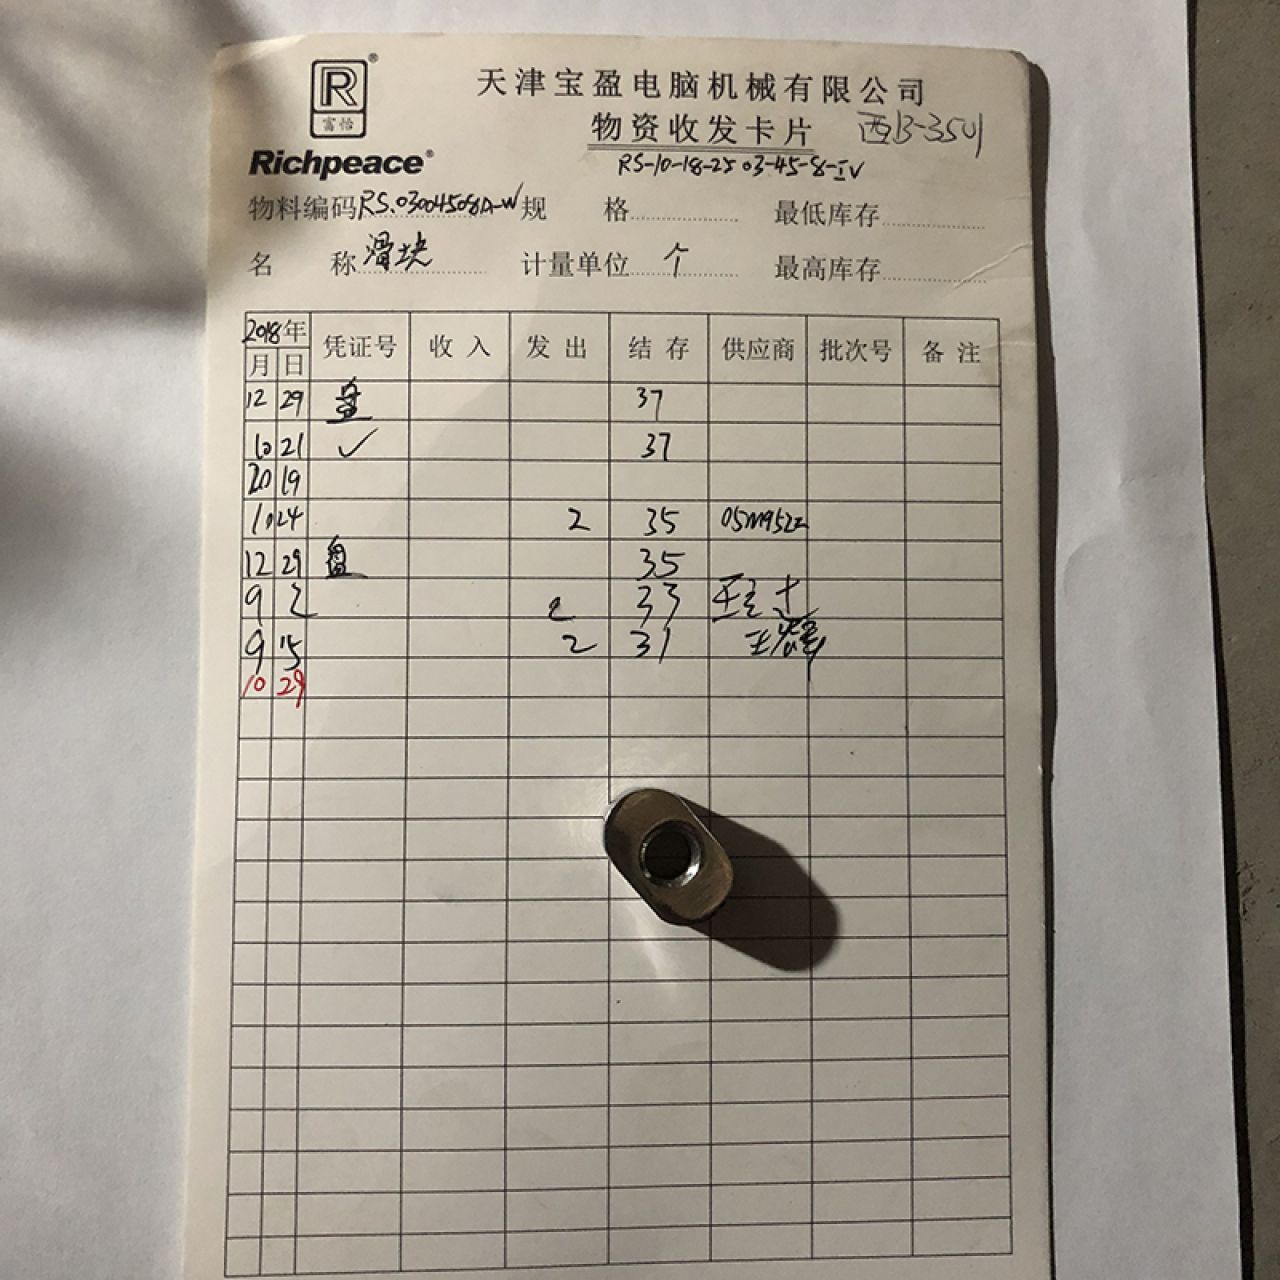 R®
富怡
Richpeace®
天津宝盈电脑机械有限公司
物资收发卡片 西B-3501
RS-10-18-25 03-45-8-IV
物料编码RS.03004508A-W 规 格 最低库存
名 称 滑块 计量单位 个 最高库存
2018年 凭证号 收入 发出 结存 供应商 批次号 备注
月 日
12 29 盘 37
10 21 ✓ 37
20 19
10 24 2 35
12 29 盘 35
9 2 2 33
9 15 2 31 王
10 29